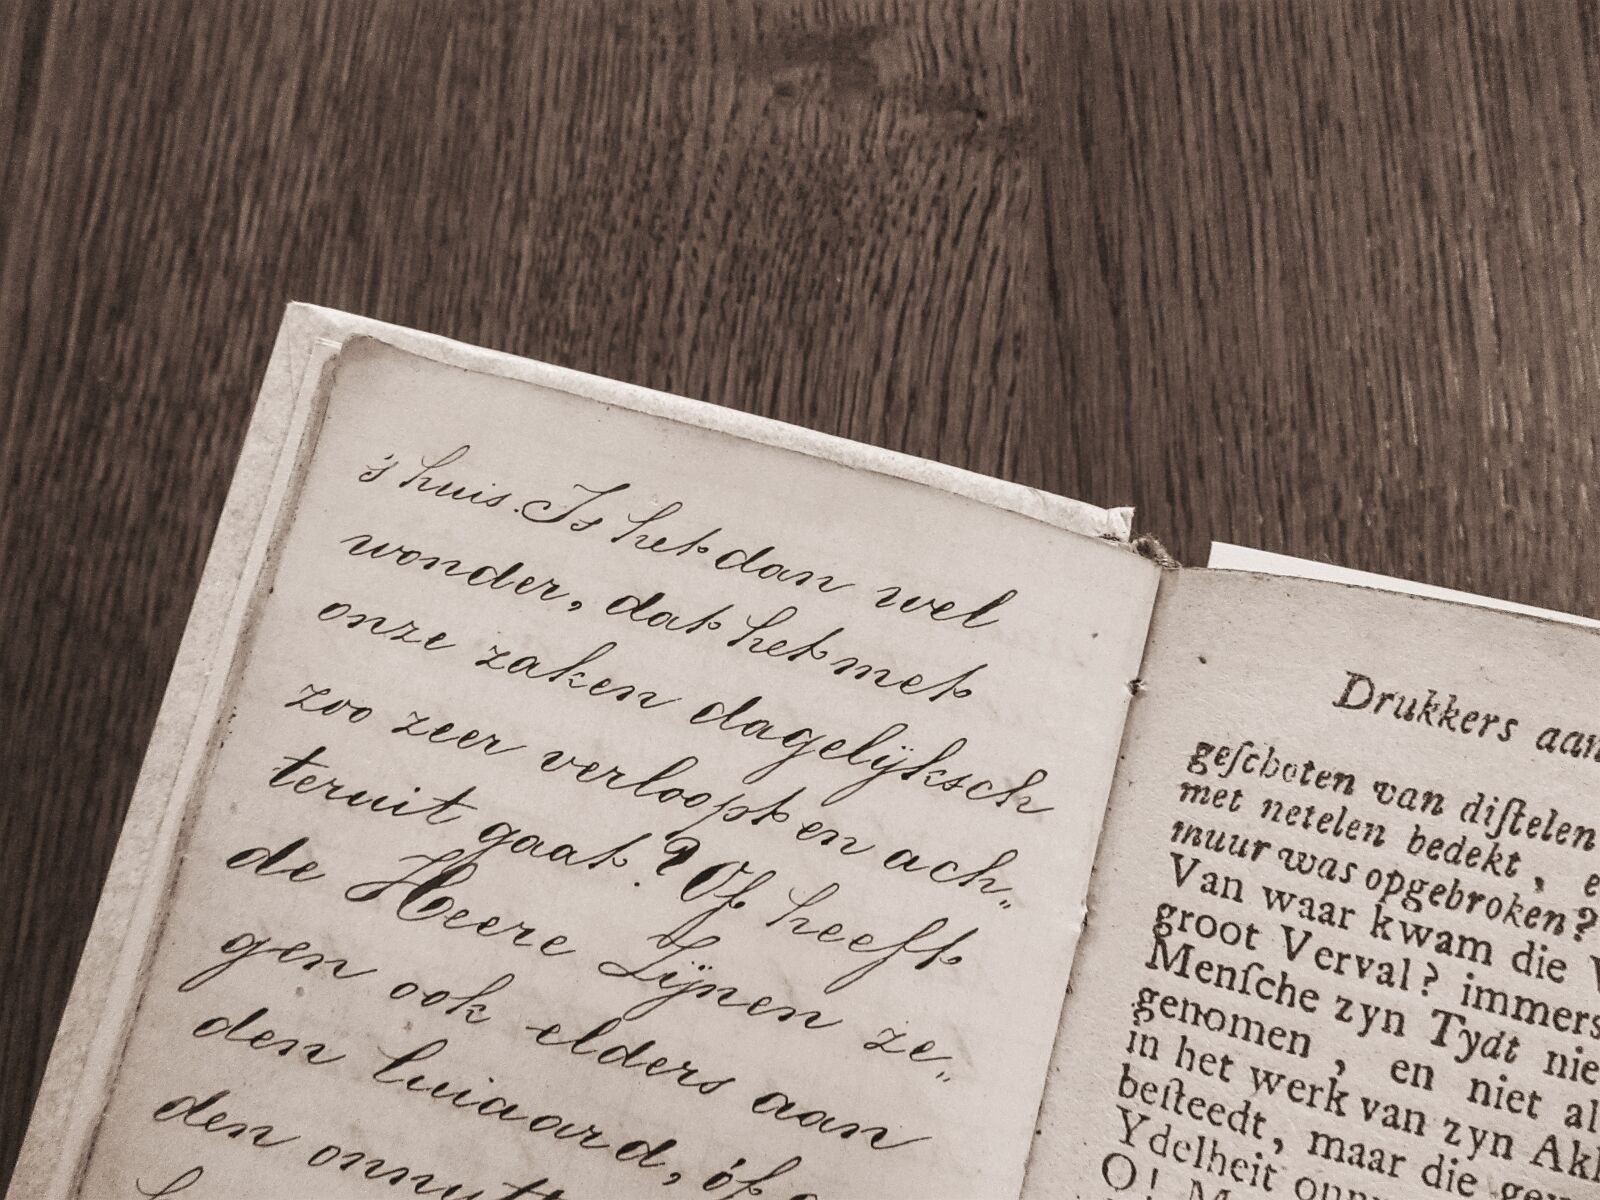 's huis. Is het dan wel
wonder, dat het met
onze zaken dagelijksch
zoo zeer verloopt en ach„
teruit gaat? Of heeft
de Heere Zijnen ze„
gen ook elders aan
den luiaard, óf
den onnutt
Drukkers aan
geſchoten van diſtelen
met netelen bedekt, e
muur was opgebroken?
Van waar kwam die V
groot Verval? immers
Menſche zyn Tydt nie
genomen, en niet al
in het werk van zyn Akk
beſteedt, maar die gew
Ydelheit onn
O! M